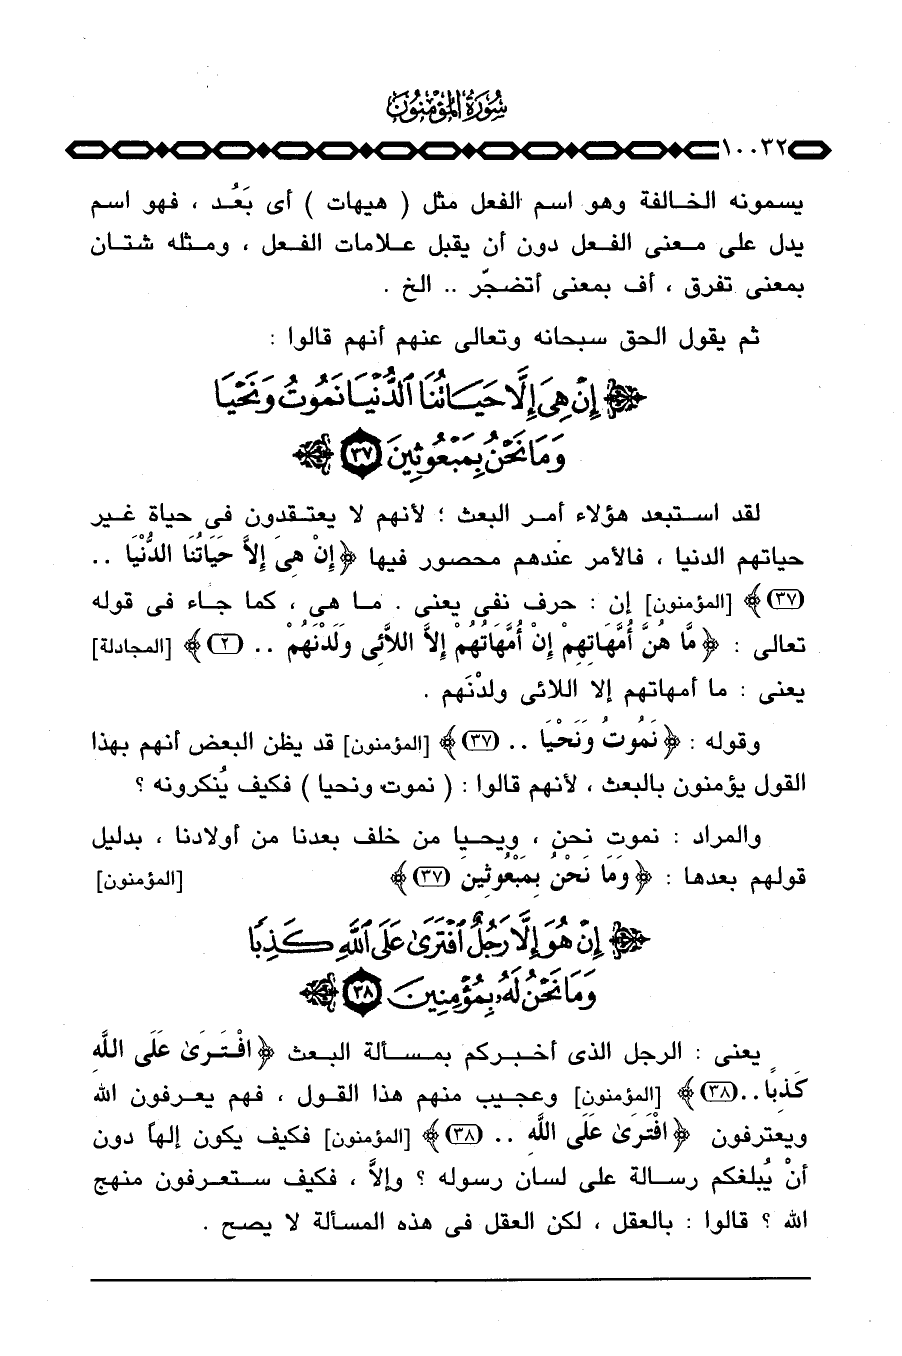 سُورَةُ المُؤْمِنُونَ
١٠٠٣٢
يسمونه الخـالفة وهو اسم الفعل مثل ( هيهات ) أى بَعُـد ، فهو اسم
يدل على مـعنى الفـعل دون أن يقبل عـلامات الفـعل ، ومـثله شتـان
بمعنى تفرق ، أف بمعنى أتضجَّر .. الخ .
ثم يقول الحق سبحانه وتعالى عنهم أنهم قالوا :
﴿ إِنْ هِيَ إِلَّا حَيَاتُنَا ٱلدُّنْيَا نَمُوتُ وَنَحْيَا
وَمَا نَحْنُ بِمَبْعُوثِينَ ٣٧ ﴾
لقد استبعد هؤلاء أمـر البعث ؛ لأنهم لا يعتـقدون فى حياة غـير
حياتهم الدنيا ، فالأمر عندهم محصور فيها ﴿ إِنْ هِىَ إِلاَّ حَيَاتُنَا الدُّنْيَا ..
(٣٧) ﴾ [المؤمنون] إن : حرف نفى يعنى . مـا هى ، كما جـاء فى قوله
تعالى : ﴿ مَّا هُنَّ أُمَّهَاتِهِمْ إِنْ أُمَّهَاتُهُمْ إِلاَّ اللاَّئِى وَلَدْنَهُمْ .. (٢) ﴾ [المجادلة]
يعنى : ما أمهاتهم إلا اللائى ولدْنَهم .
وقوله : ﴿ نَمُوتُ وَنَحْيَا .. (٣٧) ﴾ [المؤمنون] قد يظن البعض أنهم بهذا
القول يؤمنون بالبعث ، لأنهم قالوا : ( نموت ونحيا ) فكيف يُنكرونه ؟
والمراد : نموت نحن ، ويحيـا من خلف بعدنا من أولادنا ، بدليل
قولهم بعدها : ﴿ وَمَا نَحْنُ بِمَبْعُوثِينَ (٣٧) ﴾ [المؤمنون]
﴿ إِنْ هُوَ إِلَّا رَجُلٌ ٱفْتَرَىٰ عَلَى ٱللَّهِ كَذِبًا
وَمَا نَحْنُ لَهُۥ بِمُؤْمِنِينَ ٣٨ ﴾
يعنى : الرجل الذى أخـبركم بمـسـألة البـعث ﴿ افْتَـرَىٰ عَلَى اللَّهِ
كَذِبًا.. (٣٨) ﴾ [المؤمنون] وعجـيب منهم هذا القـول ، فهم يعـرفون الله
ويعترفون ﴿ افْتَرَىٰ عَلَى اللَّهِ .. (٣٨) ﴾ [المؤمنون] فكيف يكون إلهاً دون
أنْ يُبلغكم رسـالة على لسان رسوله ؟ وإلاَّ ، فكيف سـتعـرفون منهج
الله ؟ قالوا : بالعقل ، لكن العقل فى هذه المسألة لا يصح .